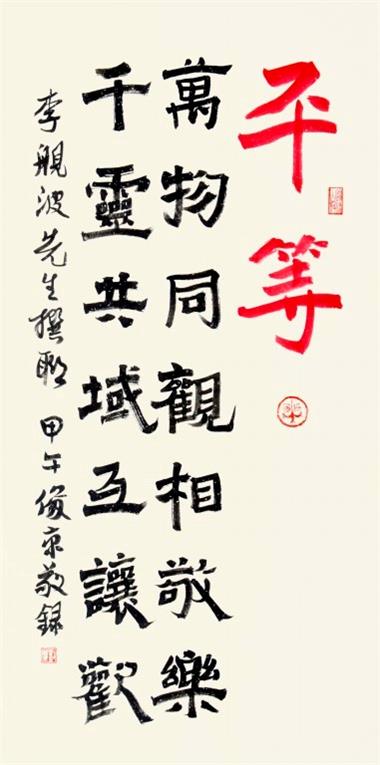 平等
萬物同觀相敬樂
千靈共域互讓歡
李舰波先生撰聯 甲午俊京敬録